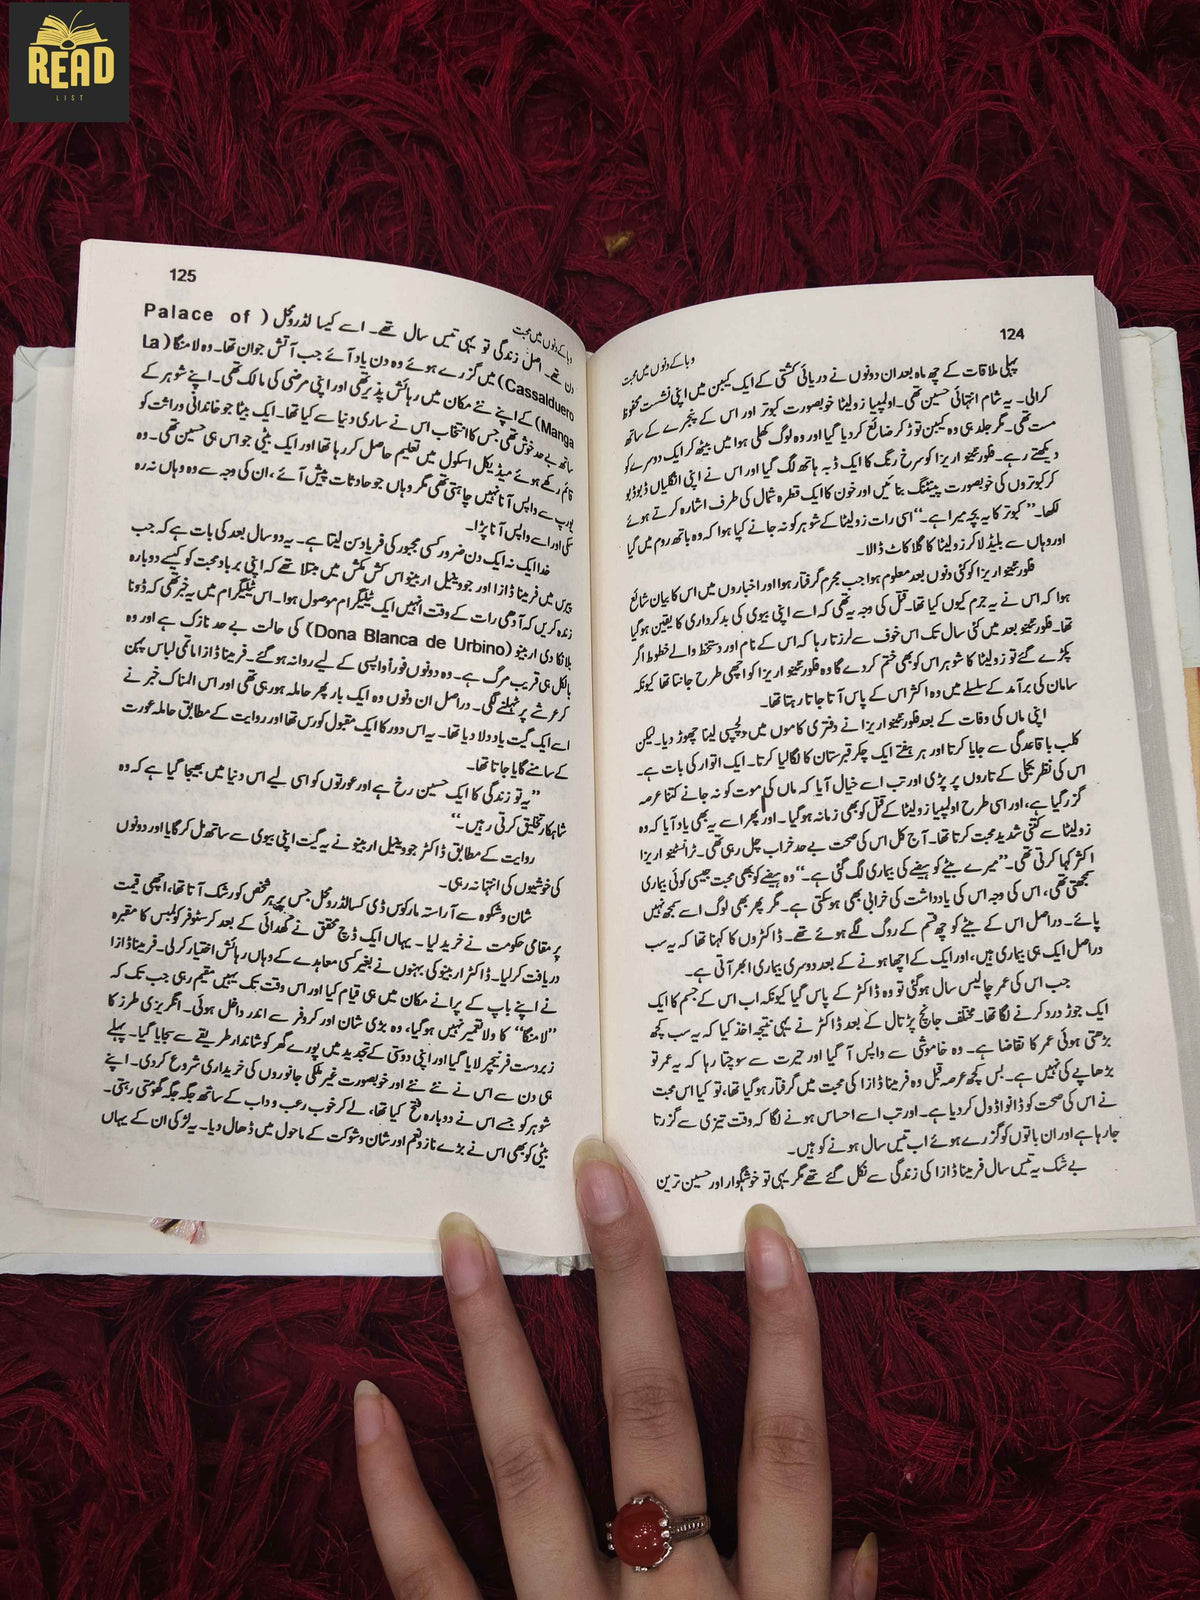 READ
LIST
124
وبا کے دنوں میں محبت
پہلی ملاقات کے چھ ماہ بعد ان دونوں نے دریائی کشتی کے ایک کیبن میں اپنی نشست محفوظ
کرالی۔ یہ شام انتہائی حسین تھی۔ اولمپیا زولیٹا خوبصورت کبوتر اور اس کے پنجرے کے ساتھ
مست تھی۔ مگر جلد ہی وہ کیبن توڑ کر ضائع کر دیا گیا اور وہ لوگ کھلی ہوا میں بیٹھ کر ایک دوسرے کو
دیکھتے رہے۔ فلورنٹینو اریزا کو سرخ رنگ کا ایک ڈبہ ہاتھ لگ گیا اور اس نے اپنی انگلیاں ڈبو ڈبو
کر کبوتروں کی خوبصورت پینٹنگ بنائیں اور خون کا ایک قطرہ شمال کی طرف اشارہ کرتے ہوئے
لکھا۔ ’’کبوتر کا یہ بچہ میرا ہے۔‘‘ اسی رات زولیٹا کے شوہر کو نہ جانے کیا ہوا کہ وہ باتھ روم میں گیا
اور وہاں سے بلیڈ لا کر زولیٹا کا گلا کاٹ ڈالا۔
فلورنٹینو اریزا کو کئی دنوں بعد معلوم ہوا جب مجرم گرفتار ہوا اور اخباروں میں اس کا بیان شائع
ہوا کہ اس نے یہ جرم کیوں کیا تھا۔ قتل کی وجہ یہ تھی کہ اسے اپنی بیوی کی بدکرداری کا یقین ہو گیا
تھا۔ فلورنٹینو بعد میں کئی سال تک اس خوف سے لرزتا رہا کہ اس کے نام اور دستخط والے خطوط اگر
پکڑے گئے تو زولیٹا کا شوہر اس کو بھی ختم کر دے گا وہ فلورنٹینو اریزا کو اچھی طرح جانتا تھا کیونکہ
سامان کی برآمد کے سلسلے میں وہ اکثر اس کے پاس آتا جاتا رہتا تھا۔
اپنی ماں کی وفات کے بعد فلورنٹینو اریزا نے دفتری کاموں میں دلچسپی لینا چھوڑ دیا۔ لیکن
کلب باقاعدگی سے جایا کرتا اور ہر ہفتے ایک چکر قبرستان کا لگا لیا کرتا۔ ایک اتوار کی بات ہے۔
اس کی نظر بجلی کے تاروں پر پڑی اور تب اسے خیال آیا کہ ماں کی موت کو نہ جانے کتنا عرصہ
گزر گیا ہے، اور اسی طرح اولمپیا زولیٹا کے قتل کو بھی زمانہ ہو گیا۔ اور پھر اسے یہ بھی یاد آیا کہ وہ
زولیٹا سے کتنی شدید محبت کرتا تھا۔ آج کل اس کی صحت بے حد خراب چل رہی تھی۔ ٹرانسٹیو اریزا
اکثر کہا کرتی تھی۔ ’’میرے بیٹے کو ہیضے کی بیماری لگ گئی ہے۔‘‘ وہ ہیضے کو بھی محبت جیسی کوئی بیماری
سمجھتی تھی، اس کی وجہ اس کی یادداشت کی خرابی بھی ہو سکتی ہے۔ مگر پھر بھی لوگ اسے سمجھ نہیں
پائے۔ دراصل اس کے بیٹے کو چھ قسم کے روگ لگے ہوئے تھے۔ ڈاکٹروں کا کہنا تھا کہ یہ سب
دراصل ایک ہی بیماری ہیں، اور ایک کے اچھا ہونے کے بعد دوسری بیماری ابھر آتی ہے۔
جب اس کی عمر چالیس سال ہو گئی تو وہ ڈاکٹر کے پاس گیا کیونکہ اب اس کے جسم کا ایک
ایک جوڑ درد کرنے لگا تھا۔ مختلف جانچ پڑتال کے بعد ڈاکٹر نے یہی نتیجہ اخذ کیا کہ یہ سب کچھ
بڑھتی ہوئی عمر کا تقاضا ہے۔ وہ خاموشی سے واپس آ گیا اور حیرت سے سوچتا رہا کہ یہ عمر تو
بڑھاپے کی نہیں ہے۔ بس کچھ عرصہ قبل وہ فرمینا ڈازا کی محبت میں گرفتار ہو گیا تھا، تو کیا اس محبت
نے اس کی صحت کو ڈانواڈول کر دیا ہے۔ اور تب اسے احساس ہونے لگا کہ وقت تیزی سے گزرتا
جا رہا ہے اور ان باتوں کو گزرے ہوئے اب تیس سال ہونے کو ہیں۔
بے شک یہ تیس سال فرمینا ڈازا کی زندگی سے نکل گئے تھے مگر یہی تو خوشگوار اور حسین ترین
125
وبا کے دنوں میں محبت
دن تھے۔ اصل زندگی تو یہی تیس سال تھے۔ اسے کیسا لڈروئل (Palace of
Cassalduero) میں گزرے ہوئے وہ دن یاد آئے جب آتش جوان تھا۔ وہ لا منگا (La
Manga) کے اپنے نئے مکان میں رہائش پذیر تھی اور اپنی مرضی کی مالک تھی۔ اپنے شوہر کے
ساتھ بے حد خوش تھی جس کا انتخاب اس نے ساری دنیا سے کیا تھا۔ ایک بیٹا جو خاندانی وراثت کو
قائم رکھے ہوئے میڈیکل اسکول میں تعلیم حاصل کر رہا تھا اور ایک بیٹی جو اس ہی حسین تھی۔ وہ
یورپ سے واپس آنا نہیں چاہتی تھی مگر وہاں جو حادثات پیش آئے، ان کی وجہ سے وہ وہاں نہ رہ
سکی اور اسے واپس آنا پڑا۔
خدا ایک نہ ایک دن ضرور کسی مجبور کی فریاد سن لیتا ہے۔ یہ دو سال بعد کی بات ہے کہ جب
پیرس میں فرمینا ڈازا اور جووینیل اربینو اس کش مکش میں مبتلا تھے کہ اپنی برباد محبت کو کیسے دوبارہ
زندہ کریں کہ آدھی رات کے وقت انہیں ایک ٹیلیگرام موصول ہوا۔ اس ٹیلیگرام میں یہ خبر تھی کہ ڈونا
بلانکا دی اربینو (Dona Blanca de Urbino) کی حالت بے حد نازک ہے اور وہ
بالکل ہی قریب مرگ ہے۔ وہ دونوں فوراً واپسی کے لیے روانہ ہو گئے۔ فرمینا ڈازا ماتمی لباس پہن
کر عرشے پر ٹہلنے لگی۔ دراصل ان دنوں وہ ایک بار پھر حاملہ ہو رہی تھی اور اس المناک خبر نے
اسے ایک گیت یاد دلا دیا تھا۔ یہ اس دور کا ایک مقبول کورس تھا اور روایت کے مطابق حاملہ عورت
کے سامنے گایا جاتا تھا۔
’’یہ تو زندگی کا ایک حسین رخ ہے اور عورتوں کو اسی لیے اس دنیا میں بھیجا گیا ہے کہ وہ
شاہکار تخلیق کرتی رہیں۔‘‘
روایت کے مطابق ڈاکٹر جووینیل اربینو نے یہ گیت اپنی بیوی سے ساتھ مل کر گایا اور دونوں
کی خوشیوں کی انتہا نہ رہی۔
شان و شکوہ سے آراستہ مارکوس ڈی کسالڈروئل جس پر ہر شخص کو رشک آتا تھا، اچھی قیمت
پر مقامی حکومت نے خرید لیا۔ یہاں ایک ڈچ محقق نے کھدائی کے بعد کرسٹوفر کولمبس کا مقبرہ
دریافت کر لیا۔ ڈاکٹر اربینو کی بہنوں نے بغیر کسی معاہدے کے وہاں رہائش اختیار کر لی۔ فرمینا ڈازا
نے اپنے باپ کے پرانے مکان میں ہی قیام کیا اور اس وقت تک یہیں مقیم رہی جب تک کہ
’’لا منگا‘‘ کا ولا تعمیر نہیں ہو گیا، وہ بڑی شان اور کروفر سے اندر داخل ہوئی۔ انگریزی طرز کا
زبردست فرنیچر لایا گیا اور اپنی دوستی کے تجدید میں پورے گھر کو شاندار طریقے سے سجایا گیا۔ پہلے
ہی دن سے اس نے نئے نئے اور خوبصورت غیر ملکی جانوروں کی خریداری شروع کر دی۔ اپنے
شوہر کو جسے اس نے دوبارہ فتح کیا تھا، لے کر خوب رعب و داب کے ساتھ جگہ جگہ گھومتی رہتی۔
بیٹی کو بھی اس نے بڑے ناز و نعم اور شان و شوکت کے ماحول میں ڈھال دیا۔ یہ لڑکی ان کے یہاں